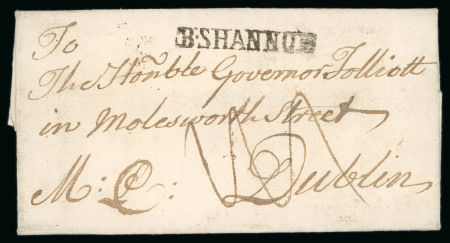 B·SHANNON
To
The Honble Governor Folliott
in Molesworth Street
M: Q: Dublin